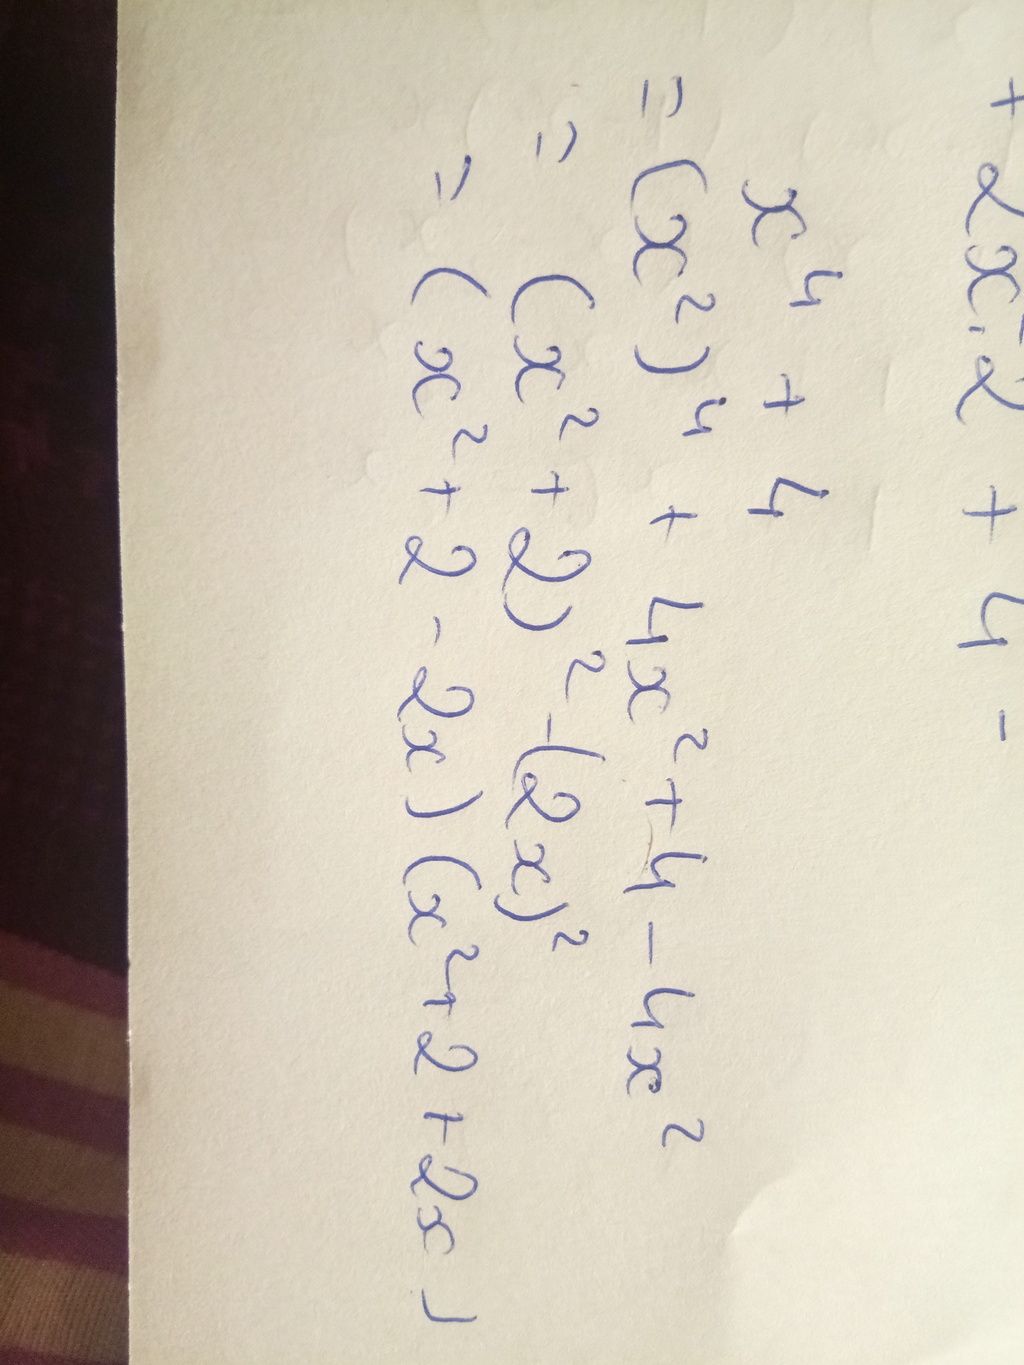 + 2x·2 + 4 -
x⁴ + 4
= (x²)⁴ + 4x² + 4 - 4x²
= (x² + 2)² - (2x)²
= (x² + 2 - 2x) (x² + 2 + 2x)